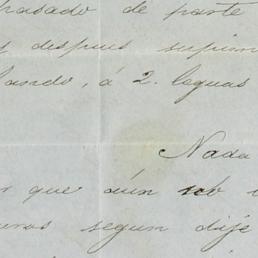 trasado de parte
despues supim
lando, á 2. leguas
Nada
r que aún
uras segun dije